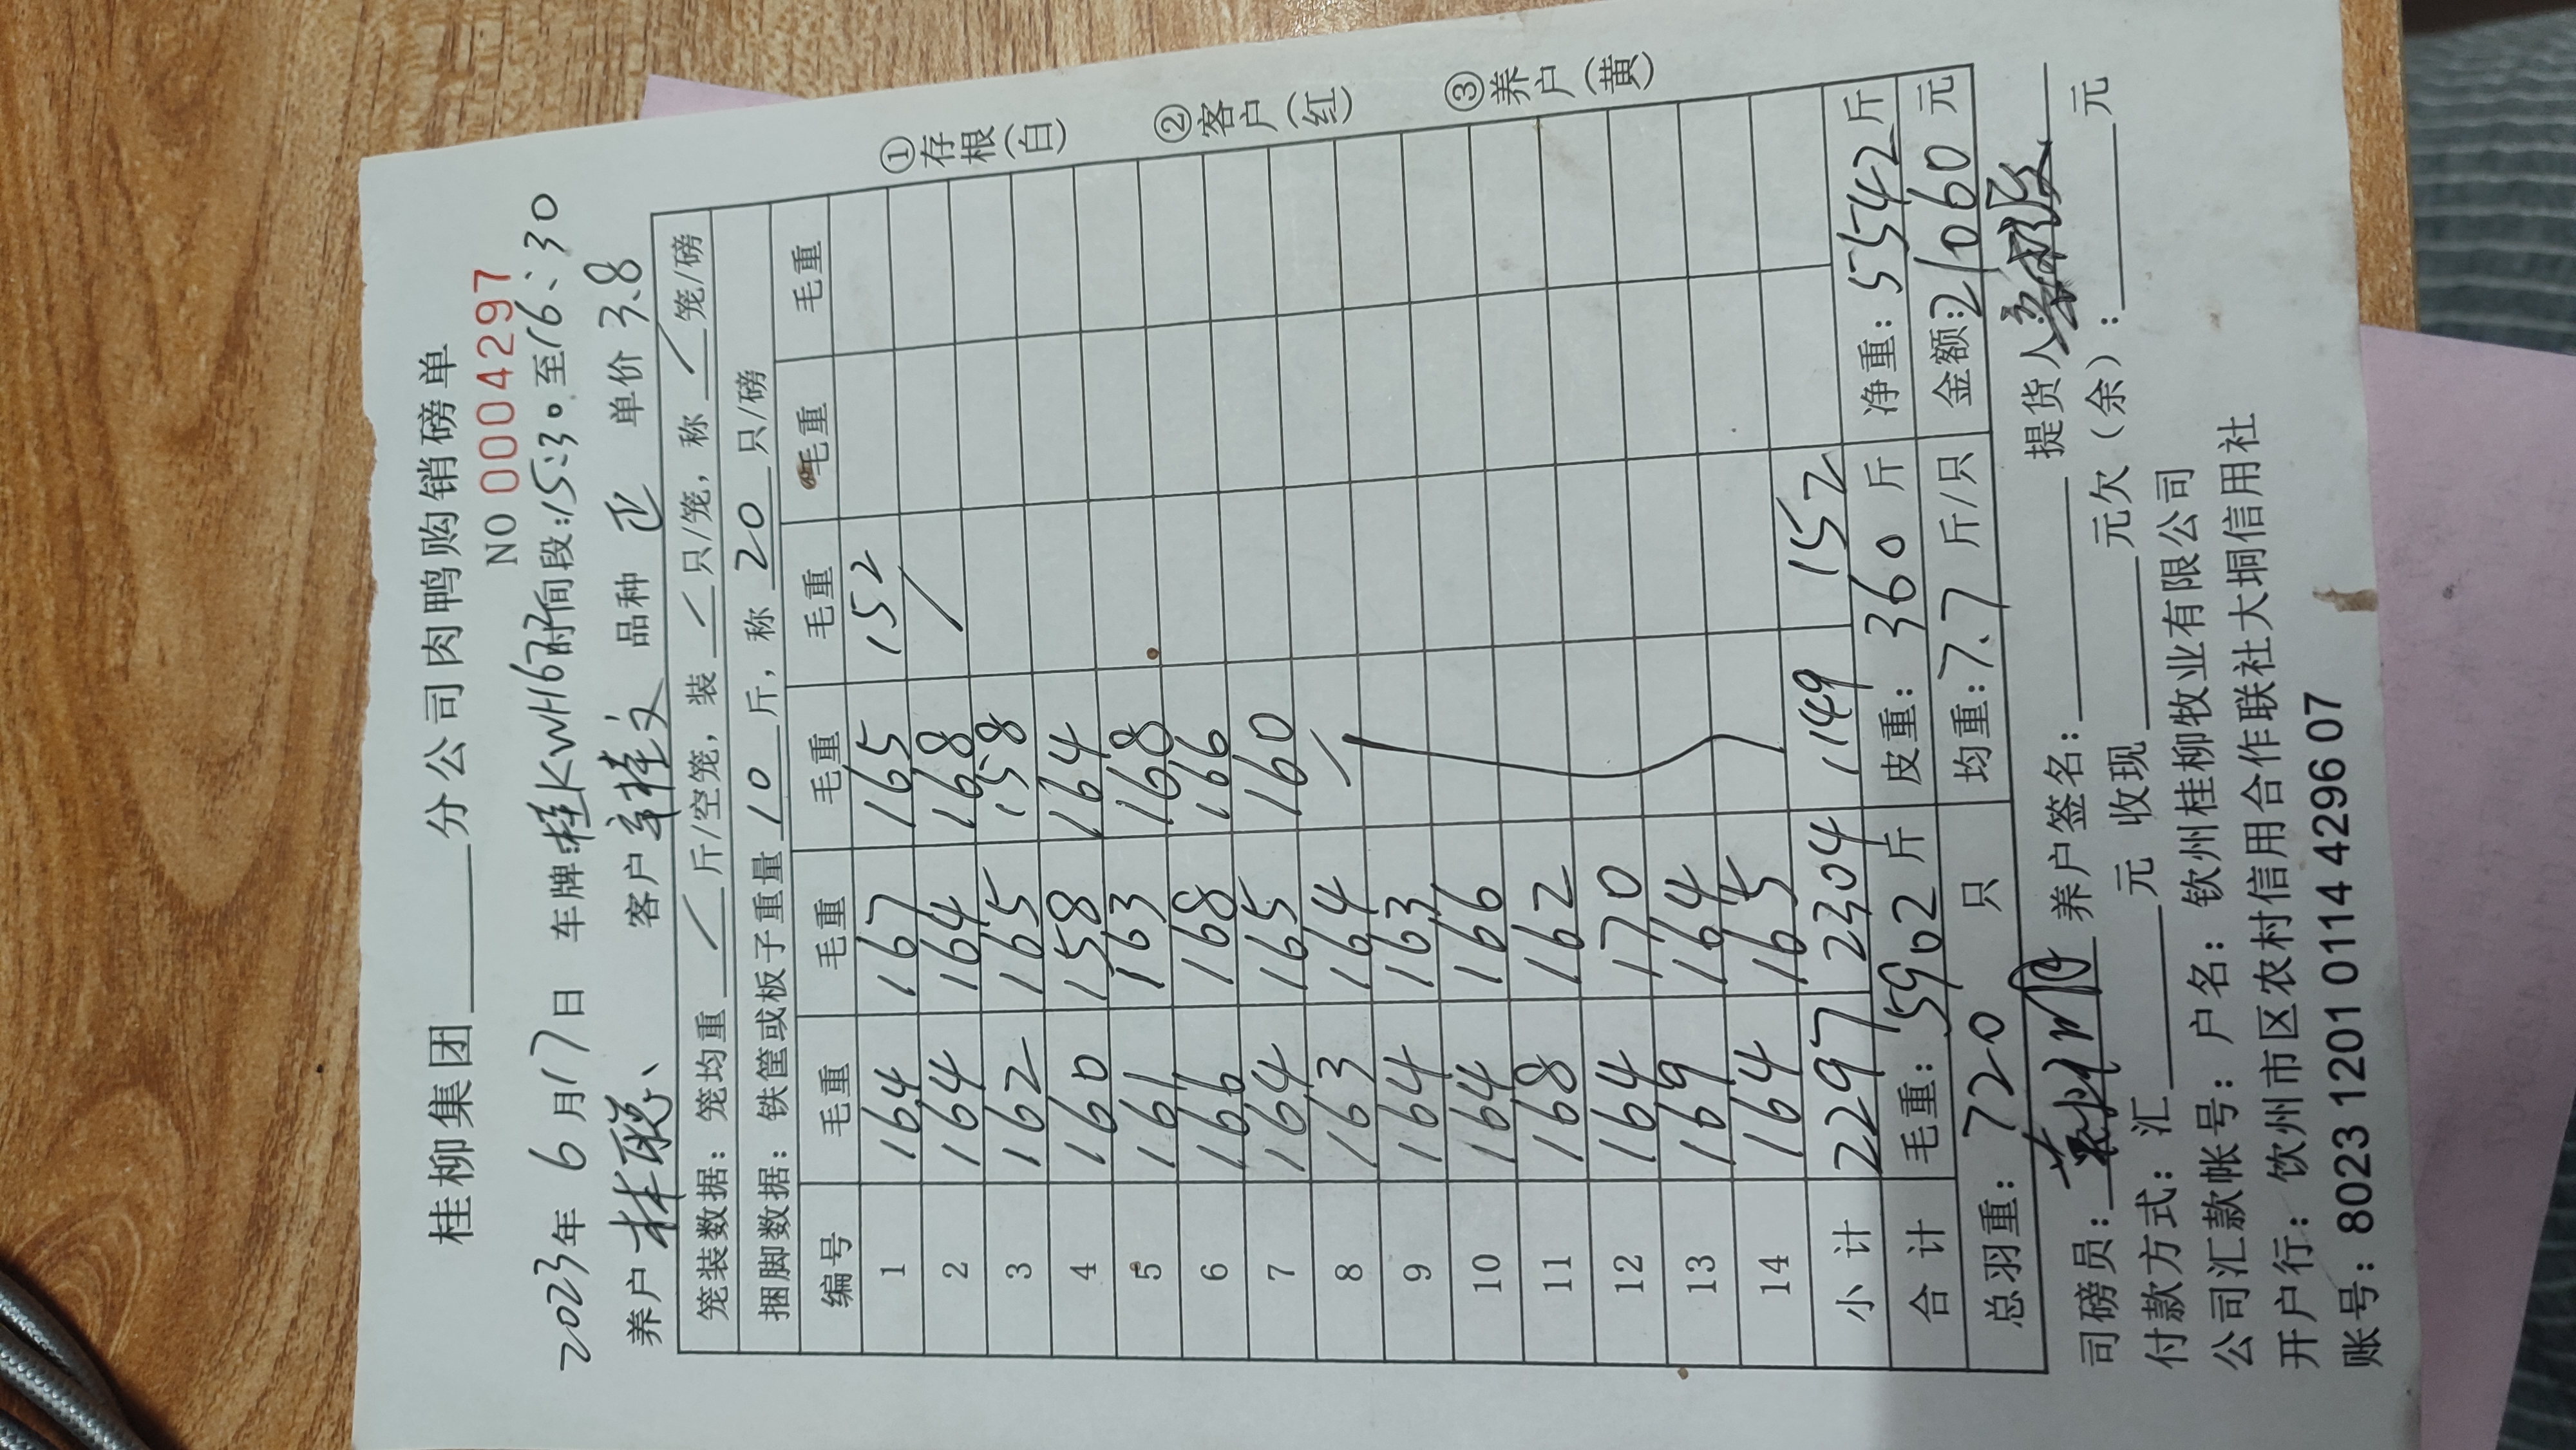 桂柳集团 分公司肉鸭购销磅单
NO 0004297
2023年 6月17日 车牌:桂KWH167 时间段:15:30 至16:30
养户 客户 辛桂文 品种 正 单价 3.8
笼装数据：笼均重 / 斤/空笼，装 / 只/笼，称 / 笼/磅
捆脚数据：铁筐或板子重量 10 斤，称 20 只/磅
编号 毛重 毛重 毛重 毛重 毛重 毛重
1 164 167 165 152
2 164 164 168 /
3 162 165 158
4 160 158 164
5 161 163 168
6 166 168 166
7 164 165 160
8 163 164
9 164 163
10 164 166
11 168 162
12 164 170
13 169 164
14 164 165
小计 2297 2304 1149 152
合计 毛重：5902斤 皮重：360斤 净重：5542斤
总羽重：720 只 均重：7.7 斤/只 金额：21060元
司磅员： 养户签名： 提货人
付款方式：汇 元 收现 元欠（余）： 元
公司汇款帐号：户名：钦州桂柳牧业有限公司
开户行：钦州市区农村信用合作联社大垌信用社
账号：8023 1201 0114 4296 07
①存根(白)
②客户(红)
③养户(黄)